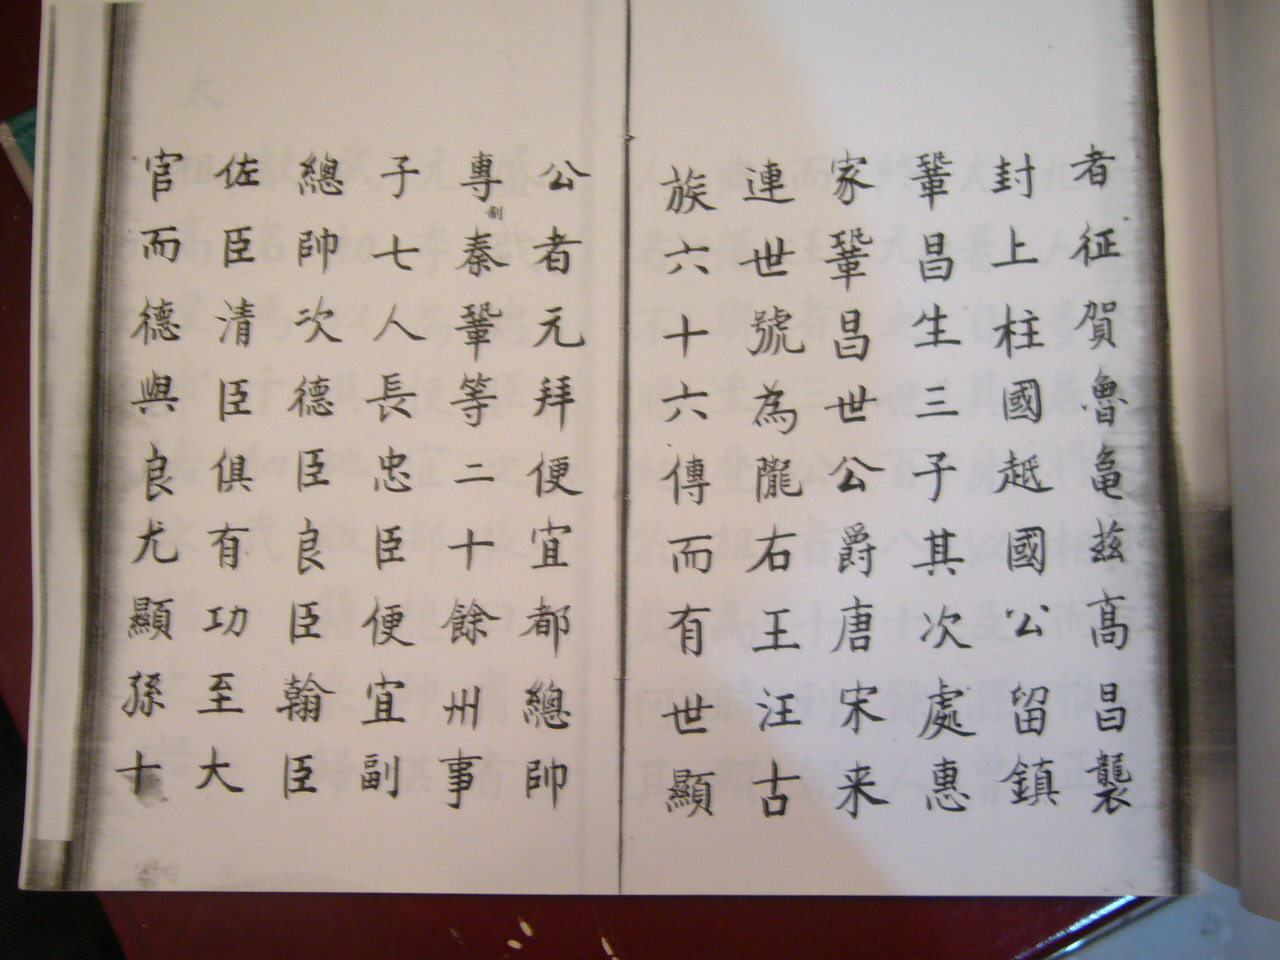 者征賀魯龜茲高昌襲
封上柱國越國公留鎮
鞏昌生三子其次處惠
家鞏昌世公爵唐宋来
連世號為隴右王汪古
族六十六傳而有世顯
公者元拜便宜都總帥
專制秦鞏等二十餘州事
子七人長忠臣便宜副
總帥次德臣良臣翰臣
佐臣清臣俱有功至大
官而德與良尤顯孫十